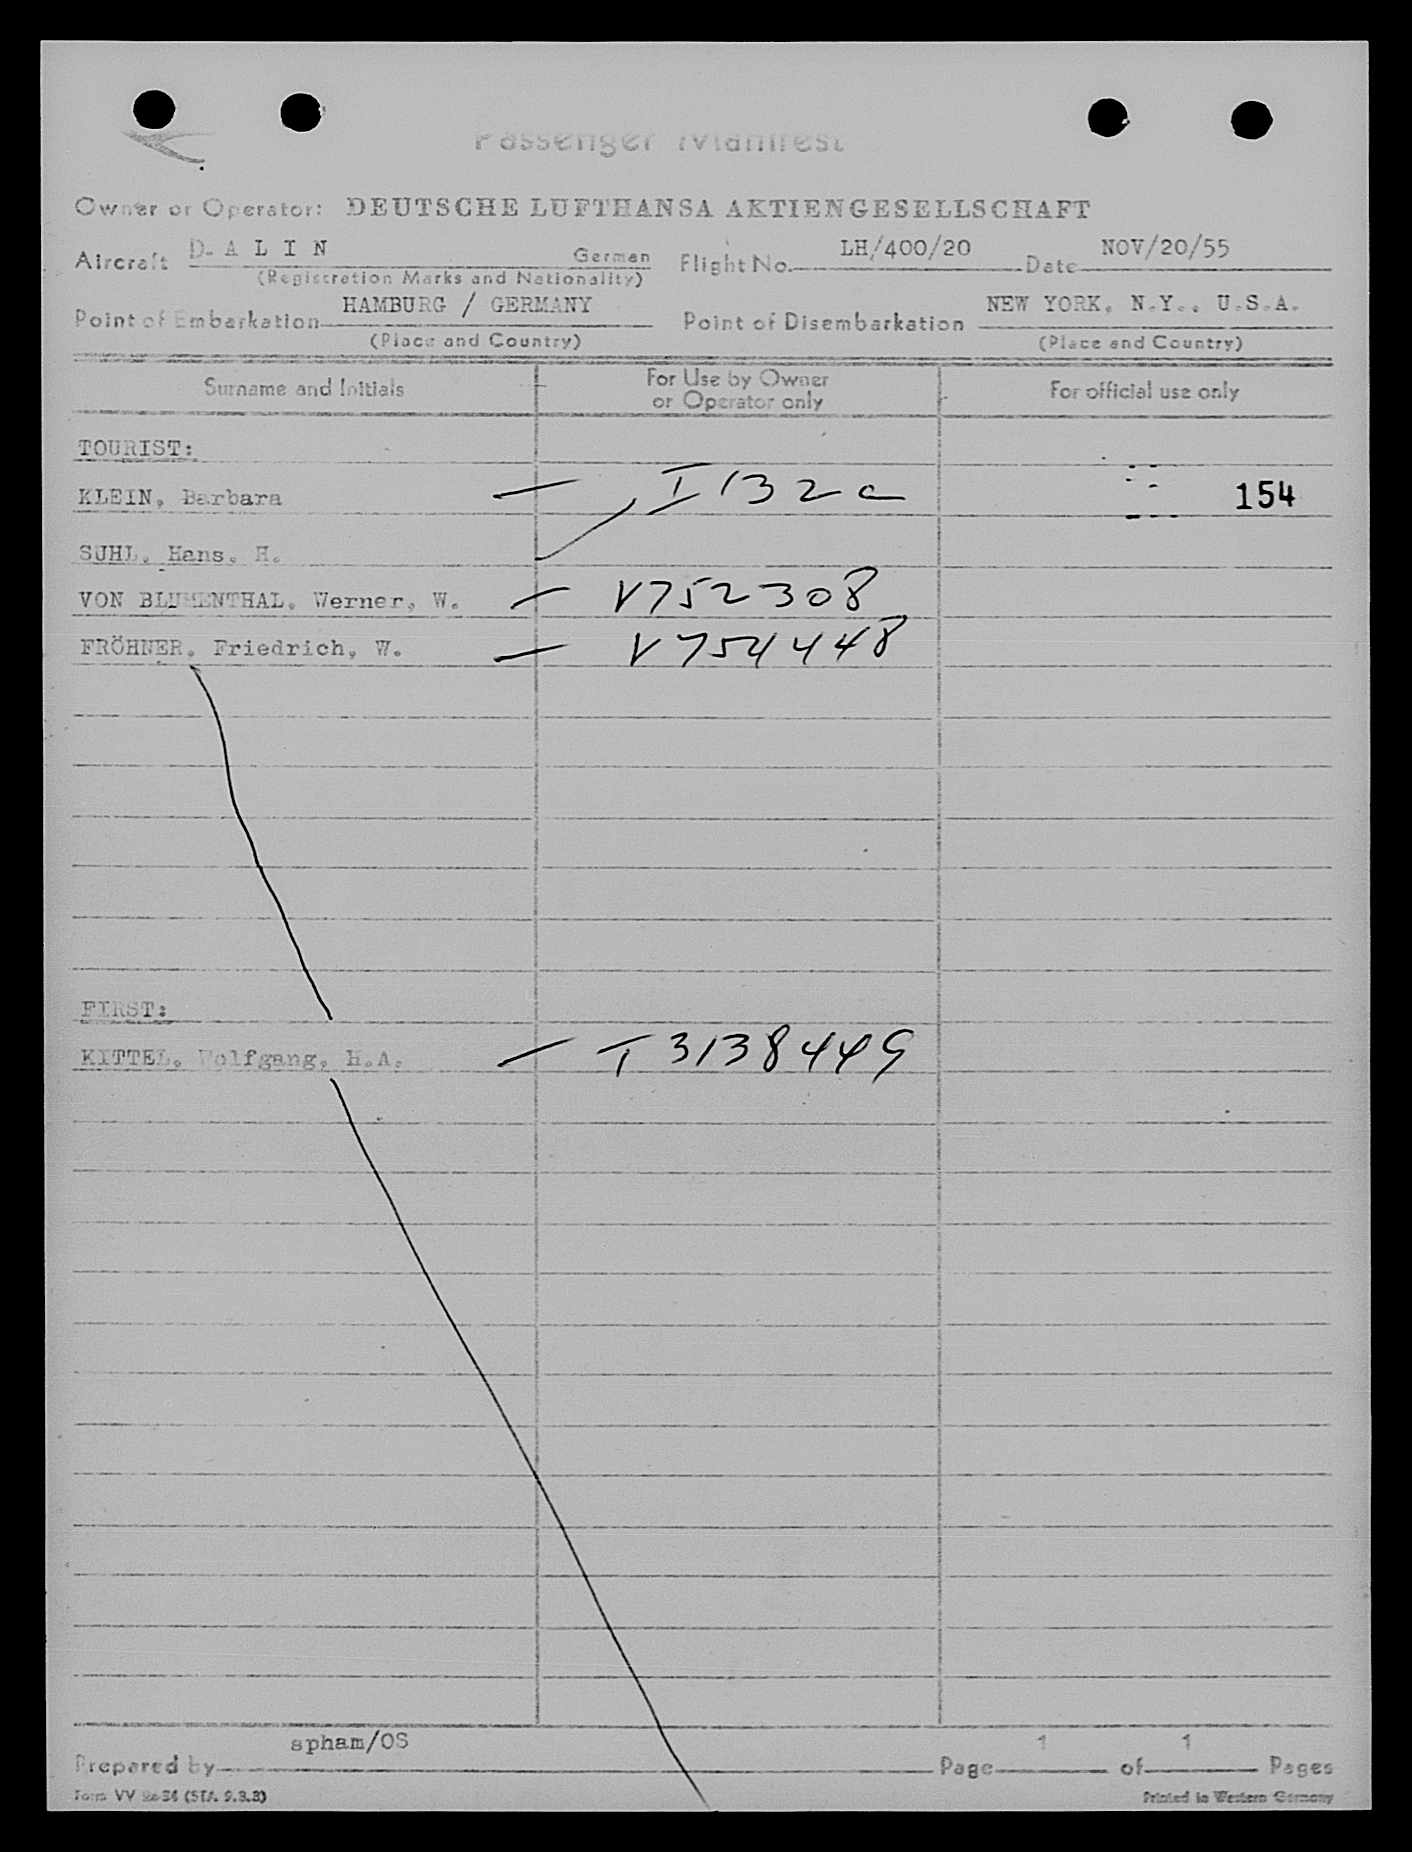 Passenger Manifest
Owner or Operator: DEUTSCHE LUFTHANSA AKTIENGESELLSCHAFT
Aircraft D-A L I N German Flight No. LH/400/20 Date NOV/20/55
(Registration Marks and Nationality)
Point of Embarkation HAMBURG / GERMANY Point of Disembarkation NEW YORK, N.Y., U.S.A.
(Place and Country) (Place and Country)
Surname and Initials For Use by Owner or Operator only For official use only
TOURIST:
KLEIN, Barbara — I 132 a 154
SUHL, Hans, H.
VON BLUMENTHAL, Werner, W. — V752308
FRÖHNER, Friedrich, W. — V754448
FIRST:
KITTEL, Wolfgang, H.A. — T3138449
Prepared by spham/OS Page 1 of 1 Pages
Form VV (STA. 9.3.3) Printed in Western Germany